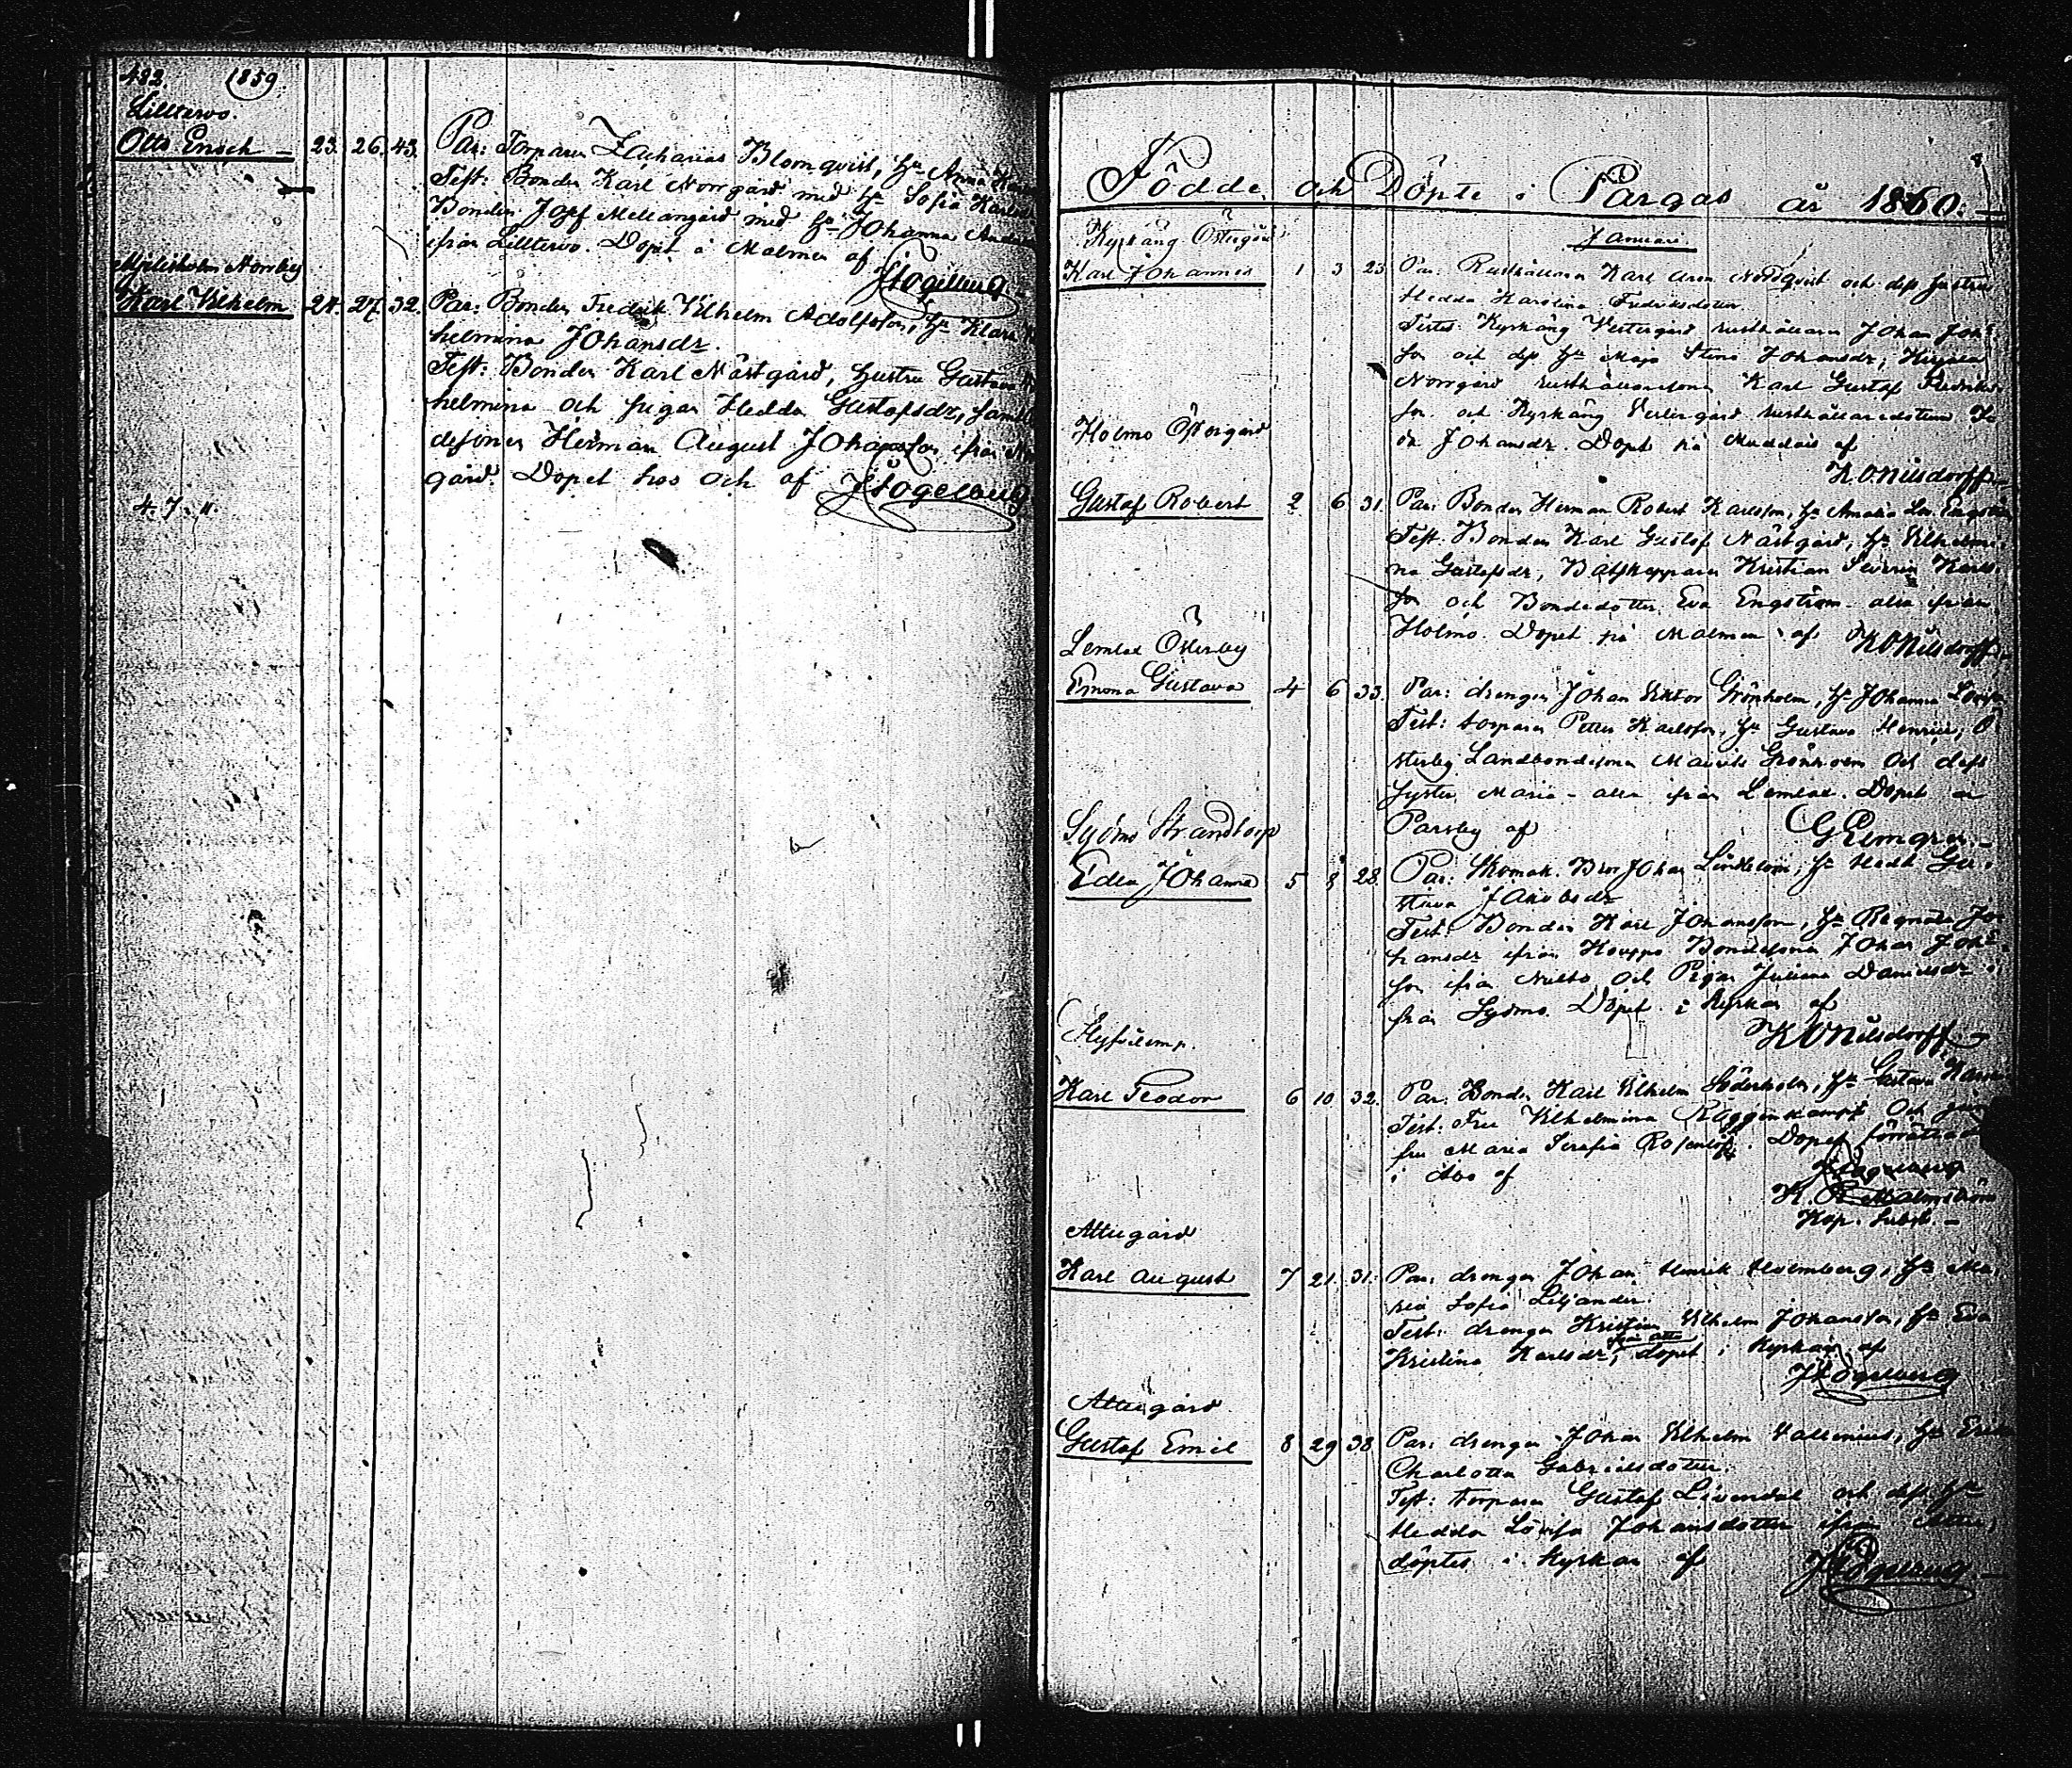 482. 1859
Lilltervo.
Otto Enoch 23. 26. 43. Par: Torparen Zacharias Blomqvist, Hu Anna
Test: Bonden Karl Norrgård med Hu Sofia
Bonden Josef Mellangård med Hu Johanna
ifrån Lilltervo. Döpt å Malmen af
JFogelberg
Norrby
Karl Vilhelm 24. 27. 32. Par: Bonden Fredrik Vilhelm Adolfsson, Hu Klara
helmina Johansdr.
Test: Bonden Karl Nästgård, hustru Gustava
helmina och pigan Hedda Gustafsdr, samt
desonen Herman August Johansson ifrån
gård. Döpet hos och af JFogelberg
4. 7. 11.
Födde och Döpte i Pargas år 1860.
Januari
Kyrkäng Östergård
Karl Johannes 1 3 23 Par. Rusthållaren Karl Aron Nordqvist och dess hustru
Hedda Karolina Fredriksdotter.
Testes: Kyrkäng Vestergård rusthållaren Johan Joh
son och dess Hu Maja Stina Johansdr,
Norrgård rusthållaresonen Karl Gustaf Fredriks
son och Kyrkäng Vestergård rusthållaredottren
Johansdr. Döpt på Muddais af
KONilsdorff
Holmo Östergård
Gustaf Robert 2 6 31. Par: Bonden Herman Robert Karlsson, Hu Amalia Lov. Engström
Test. Bonden Karl Gustaf Nästgård, Hu Vilhelmi
na Gustafsdr, Båtskepparen Kristian Severin Karls
son och Bondedotter Eva Engström alla ifrån
Holmo. Döpet på Malmen af KONilsdorff
Lemlax Österby
Emma Gustava 4 6 33. Par: drengen Johan Viktor Grönholm, Hu Johanna Lovisa
Test: torparen Petter Karlsson, Hu Gustava Henrics, Ö
sterby Landbondesonen Grönholm och dess
syster Maria - alla ifrån Lemlax. Döpet
Parsby af GElmgren
Sydmo Strandtorp
Edla Johanna 5 8 28. Par: Skomak. Bror Johan Lindblom, Hu Hedv. Gu
stava Jakobsdr
Test: Bonden Karl Johansson, Hu Regnata Jo
hansdr ifrån Houppo Bondesonen Johan Joh
son ifrån och Pigan Juliana Danielsdr i
från Sydmo. Döpet i Kyrkan af
KONilsdorff
Karl Teodor 6 10 32. Par: Bonden Karl Vilhelm Söderholm, Hu Gustava
Test. Fru Vilhelmina Röggenkampf och jung
fru Maria Serafia Rosenlöf. Döpet förrättad
i Åbo af JFogelberg
K. R. Malmström
Kap. Subst.
Attugård
Karl August 7 21. 31. Par: drengen Johan Henrik Holmberg, Hu Ma
ria Sofia Liljander.
Test: drengen Kristian Vilhelm Johansson, Hu Eva
Kristina Karlsdr, från Attu döpet i Kyrkan af
JFogelberg
Attugård
Gustaf Emil 8 29 38 Par: drengen Johan Vilhelm Vallenius, Hu Erika
Charlotta Gabrielsdotter.
Test: torparen Gustaf Livendal och dess Hu
Hedda Lovisa Johansdotter ifrån Attu,
döptes i Kyrkan af JFogelberg